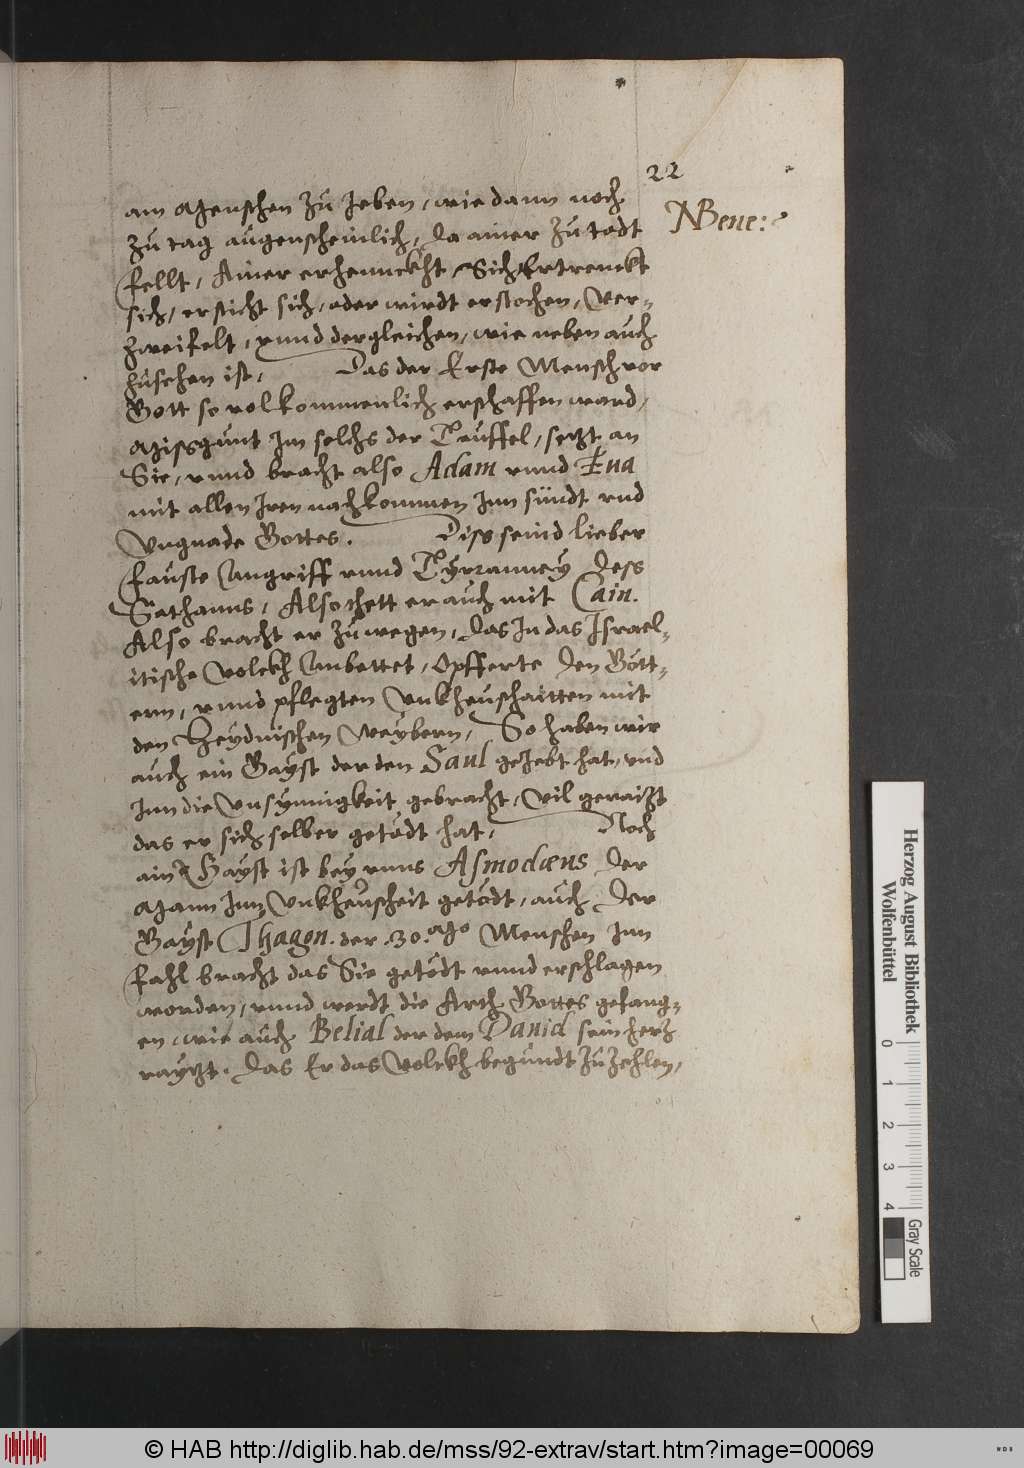 22
NBene:
am Menschen zu Ieben, wie dann noch
zu tag augenscheinlich, da ainer zu todt
fellt, Ainer erhennckht Sich, Ertrenckt
sich, ersticht sich, oder wirdt erstochen, Ver-
zweifelt, vnnd dergleichen, wie neben auch
zusehen ist, Das der Erste Mensch vor
Gott so volkommenlich erschaffen ward,
Missgunt Im solchs der Teuffel, setzt an
Sie, vnnd bracht also Adam vnnd Eua
mit allen Iren nachkommen Inn sündt vnd
Vngnade Gottes. Diss seind lieber
Fauste Angriff vnnd Tyranney dess
Sathanns, Also thett er auch mit Cain.
Also bracht er zu wegen, das In das Israel-
itische Volckh Anbettet, Opfferte den Gött-
ern, vnnd pflegten Vnkheuschaitten mit
den Heydnischen Weybern, So haben wir
auch ein Gayst der den Saul geIebt hat, vnd
Inn die Vnsynnigkeit gebracht, Vil geraitzt
das er sich selber getödt hat, Noch
ain Gayst ist bey vnns Asmodæus der
Mann Inn Vnkheuscheit getödt, auch der
Gayst Thagon. der .30.Mo Menschen Inn
Fahl bracht das Sie getödt vnnd erschlagen
worden, vnnd werdt die Arch Gottes gefang-
en, wie auch Belial der dem Dauid sein hertz
raytzt. das Er das Volckh begundt zu zehlen,
Herzog August Bibliothek
Wolfenbüttel
0 1 2 3 4
Gray Scale
© HAB http://diglib.hab.de/mss/92-extrav/start.htm?image=00069
WDB